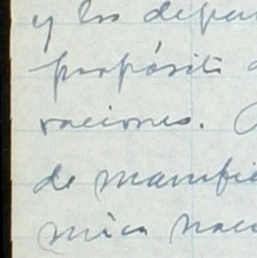 y los depar
propósito
raciones.
de manifie
mica naci